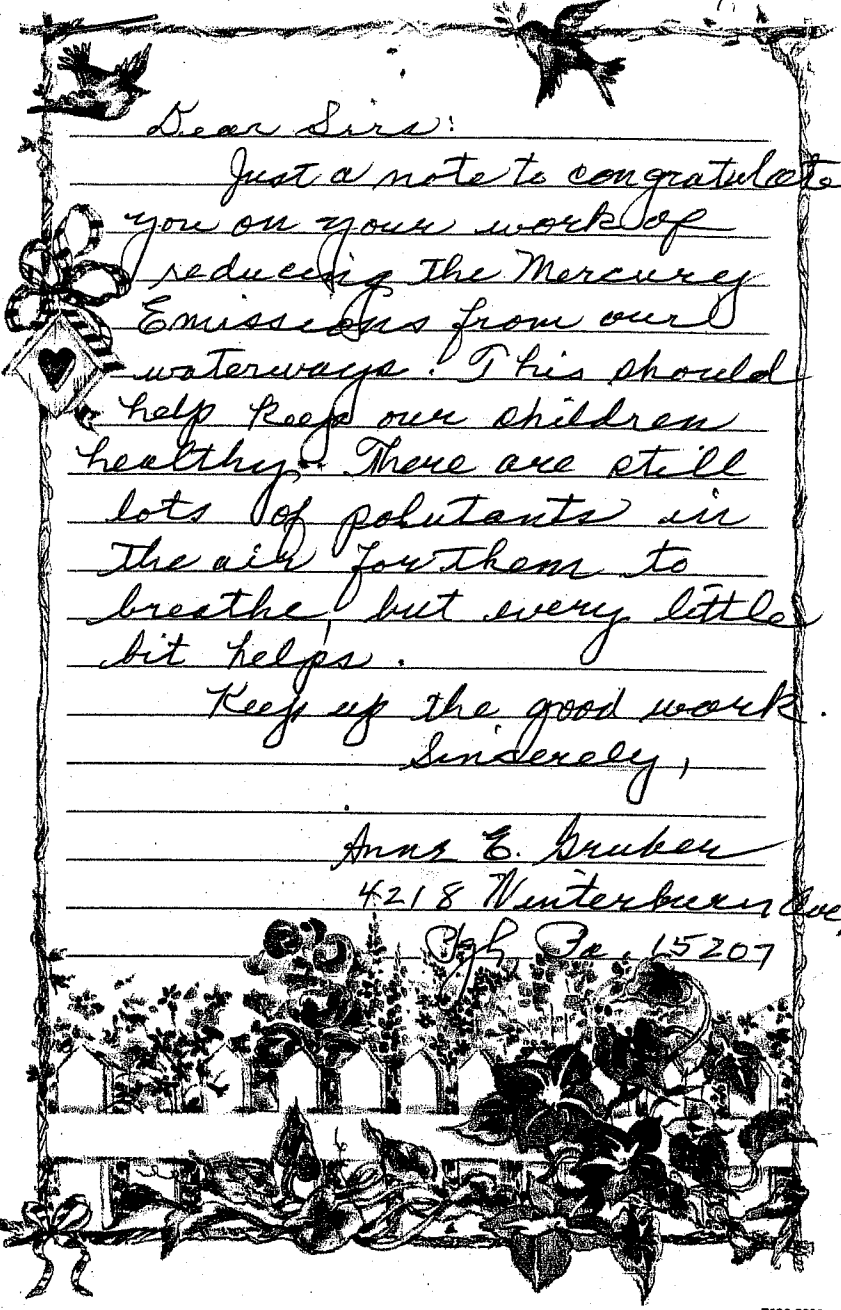 Dear Sirs:
Just a note to congratulate
you on your work of
reducing the Mercury
Emissions from our
waterways. This should
help keep our children
healthy. There are still
lots of polutants in
the air for them to
breathe, but every little
bit helps.
Keep up the good work.
Sincerely,
Anne E. Gruber
4218 Winterburn Ave,
Pgh, Pa, 15207